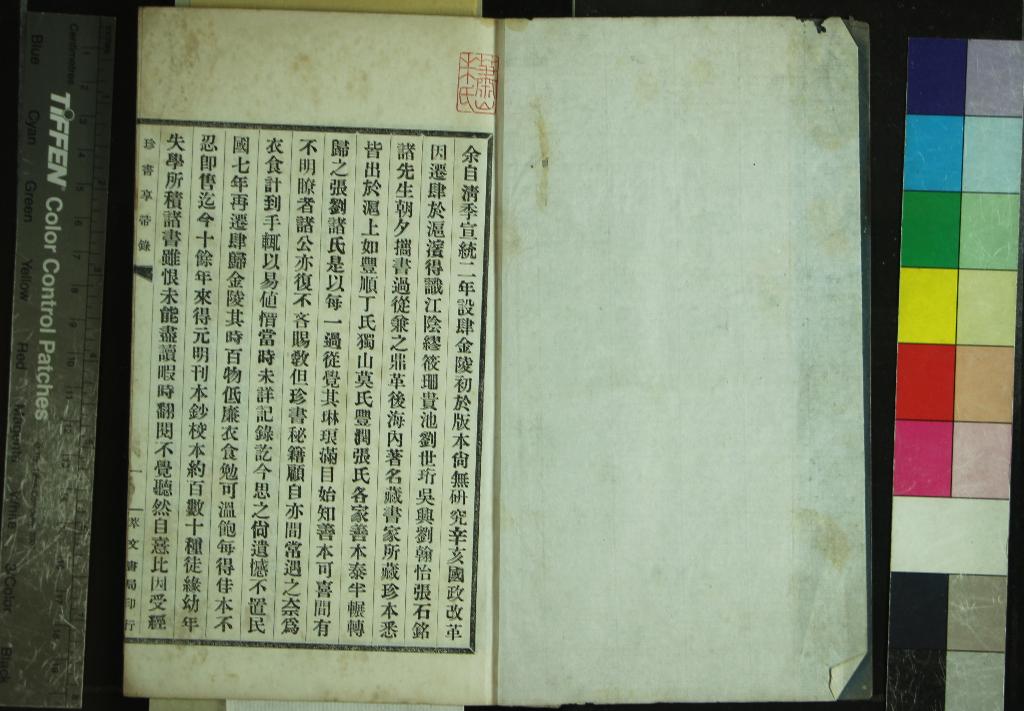 余自清季宣統二年設肆金陵初於版本尙無硏究辛亥國政改革
因遷肆於滬濱得識江陰繆筱珊貴池劉世珩吳興劉翰怡張石銘
諸先生朝夕攜書過從兼之鼎革後海內著名藏書家所藏珍本悉
皆出於滬上如豐順丁氏獨山莫氏豐潤張氏各家善本泰半輾轉
歸之張劉諸氏是以每一過從覺其琳琅滿目始知善本可喜間有
不明瞭者諸公亦復不吝賜敎但珍書秘籍顧自亦間常遇之奈爲
衣食計到手輒以易値惜當時未詳記錄訖今思之尙遺憾不置民
國七年再遷肆歸金陵其時百物低廉衣食勉可溫飽每得佳本不
忍卽售迄今十餘年來得元明刊本鈔校本約百數十種徒緣幼年
失學所積諸書雖恨未能盡讀暇時翻閱不覺聽然自憙比因受經
珍書享帚錄
一
萃文書局印行
TIFFEN Color Control Patches
Centimetres
Blue
Cyan
Green
Yellow
Red
Magenta
White
3/Color
Black